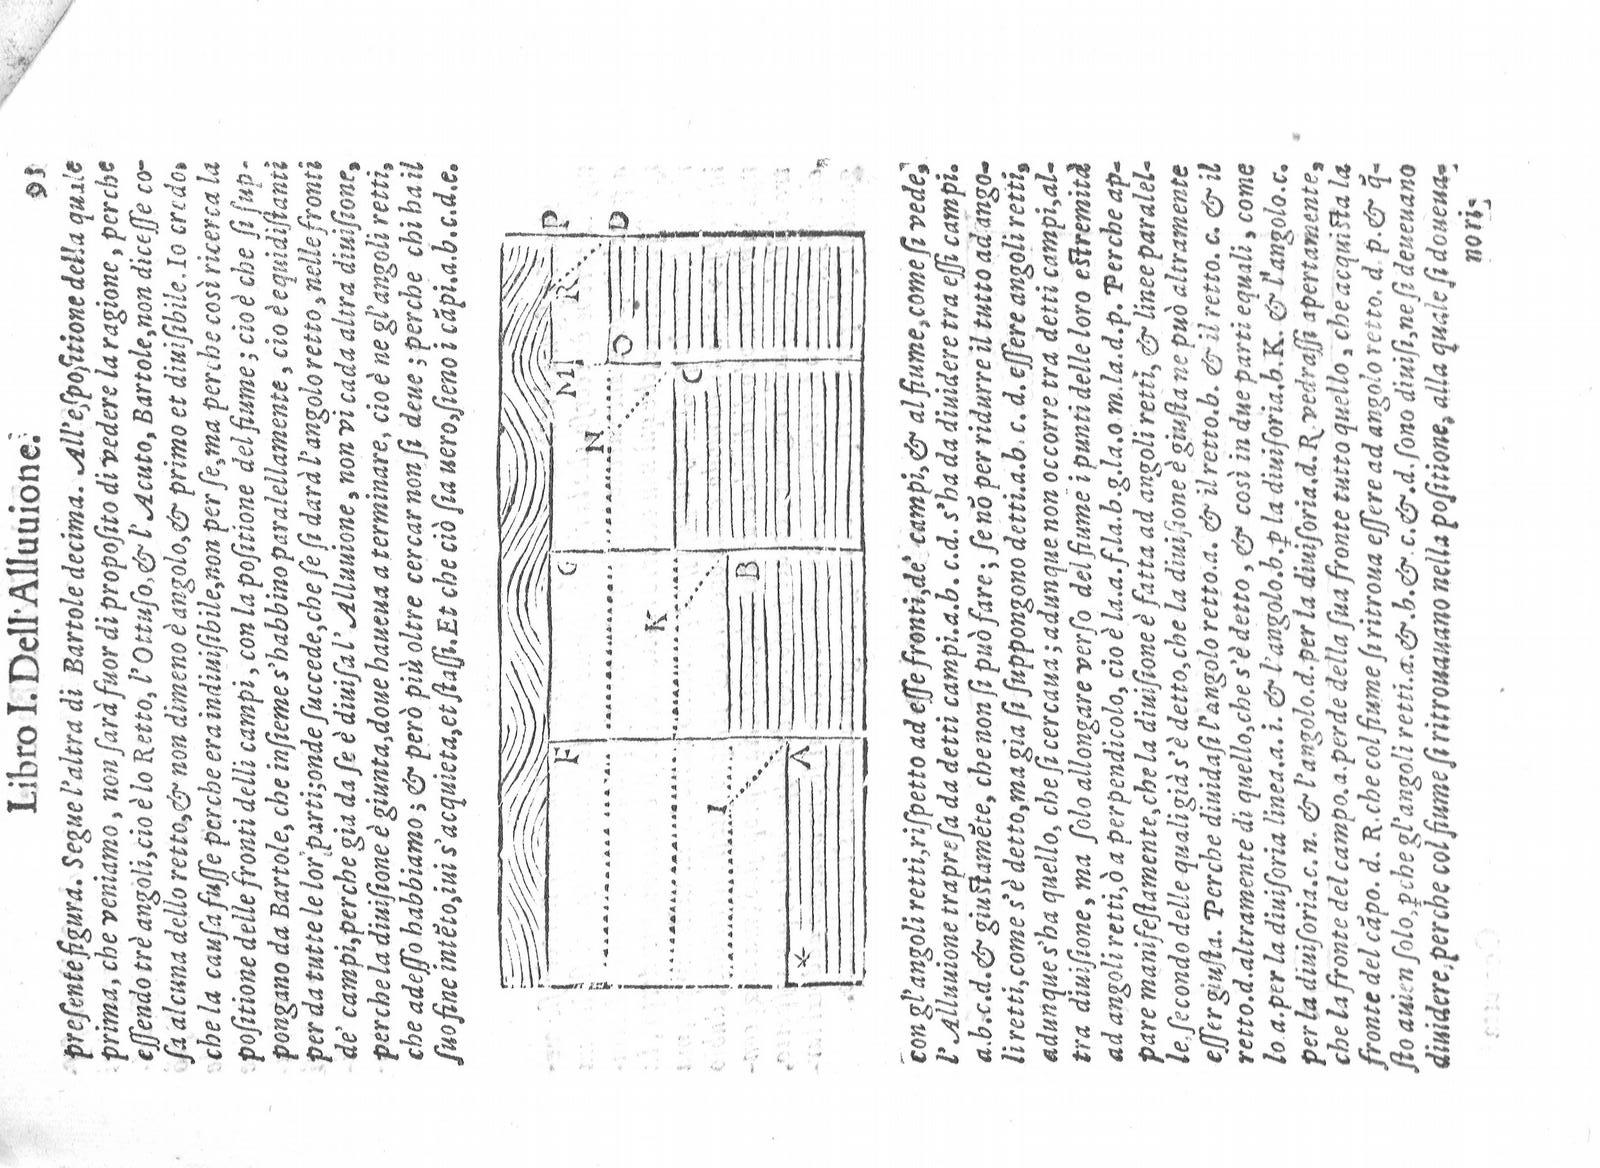 Libro I. Dell'Alluuione. 91
presente figura. Segue l'altra di Bartole decima. All'espositione della quale
prima, che veniamo, non sarà fuor di proposito di vedere la ragione, perche
essendo trè angoli, cio è lo Retto, l'Ottuso, & l'Acuto, Bartole, non dicesse co-
sa alcuna dello retto, & non dimeno è angolo, & primo et diuisibile. Io credo,
che la causa fusse perche era indiuisibile, non per se, ma perche così ricerca la
positione delle fronti delli campi, con la positione del fiume; cio è che si sup-
pongano da Bartole, che insieme s'habbino paralellamente, cio è equidistanti
per da tutte le lor' parti; onde succede, che se si darà l'angolo retto, nelle fronti
de' campi, perche gia da se è diuisa l'Alluuione, non vi cada altra diuisione,
perche la diuisione è giunta, doue haueua a terminare, cio è ne gl'angoli retti,
che adesso habbiamo; & però più oltre cercar non si deue; perche chi ha il
suo fine intēto, iui s'acquieta, et stassi. Et che ciò sia uero, sieno i cāpi. a. b. c. d. e.
P
D
R
O
M
C
N
G
B
K
F
A
I
*
con gl'angoli retti, rispetto ad esse fronti, de' campi, & al fiume, come si vede,
l'Alluuione trapresa da detti campi. a. b. c. d. s'ha da diuidere tra essi campi.
a. b. c. d. & giustamēte, che non si può fare; se nō per ridurre il tutto ad ango-
li retti, come s'è detto, ma gia si suppongono detti. a. b. c. d. essere angoli retti,
adunque s'ha quello, che si cercaua; adunque non occorre tra detti campi, al-
tra diuisione, ma solo allongare verso del fiume i punti delle loro estremità
ad angoli retti, ò a perpendicolo, cio è la. a. f. la. b. g. la. o. m. la. d. p. Perche ap-
pare manifestamente, che la diuisione è fatta ad angoli retti, & linee paralel-
le, secondo delle quali già s'è detto, che la diuisione è giusta ne può altramente
esser giusta. Perche diuidasi l'angolo retto. a. & il retto. b. & il retto. c. & il
retto. d. altramente di quello, che s'è detto, & così in due parti equali, come
lo. a. per la diuisoria linea. a. i. & l'angolo. b. p̱ la diuisoria. b. K. & l'angolo. c.
per la diuisoria. c. n. & l'angolo. d. per la diuisoria. d. R. vedrassi apertamente,
che la fronte del campo. a. perde della sua fronte tutto quello, che acquista la
fronte del cāpo. d. R. che col fiume si ritroua essere ad angolo retto. d. p. & q̄-
sto auien solo, p̱che gl'angoli retti. a. & . b. & . c. & . d. sono diuisi, ne si deueuano
diuidere, perche col fiume si ritrouauano nella positione, alla quale si doueua-
no ri-